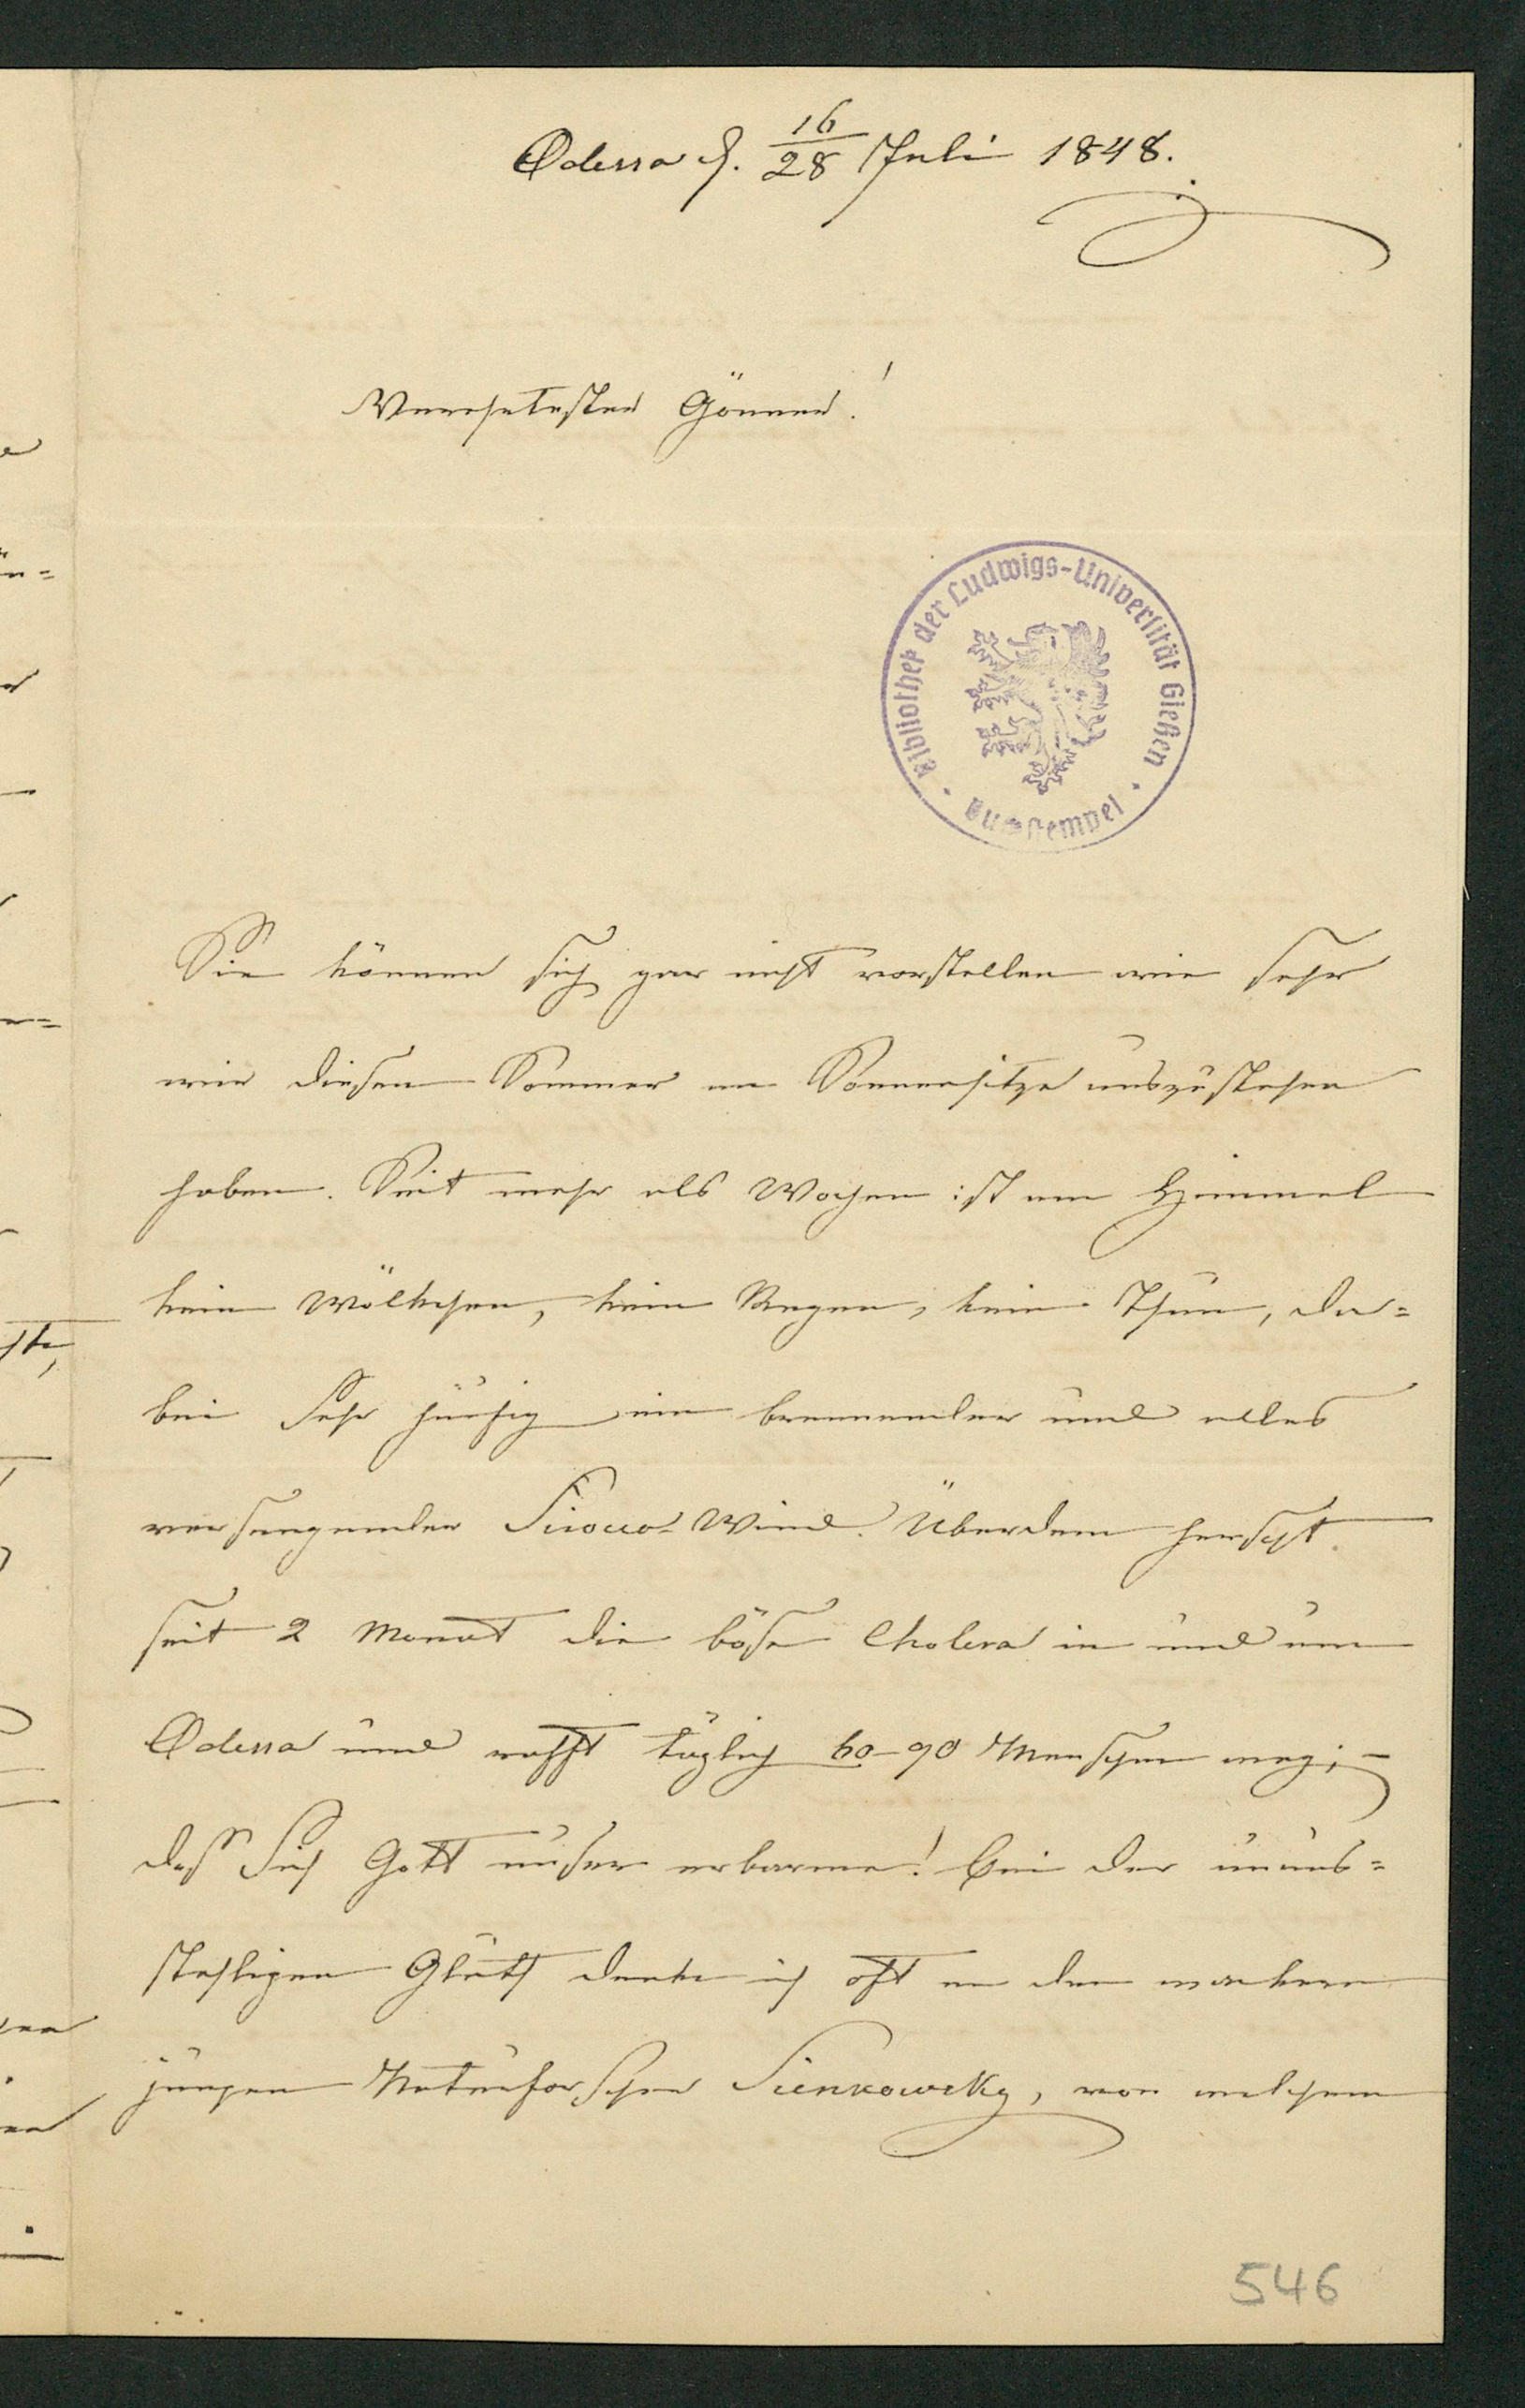 Odessa d. 16/28 Juli 1848.
Verehrtester Gönner!
Bibliothek der Ludwigs-Universität Gießen
Sie können sich gar nicht vorstellen wie sehr
wir diesen Sommer an Sonnenhitze auszustehen
haben. Seit mehr als Wochen ist am Himmel
kein Wölkchen, kein Regen, kein Thau, da=
bei sehr häufig ein brennender und alles
versengender Sirocco-Wind. Überdem herscht
seit 2 Monat die böse Cholera in und um
Odessa und rafft täglich 60-90 Menschen weg; -
daß sich Gott unser erbarme! Bei der unaus=
stehligen Gluth denke ich oft an den wackern
jungen Naturforscher Sienkowsky, von welchem
546